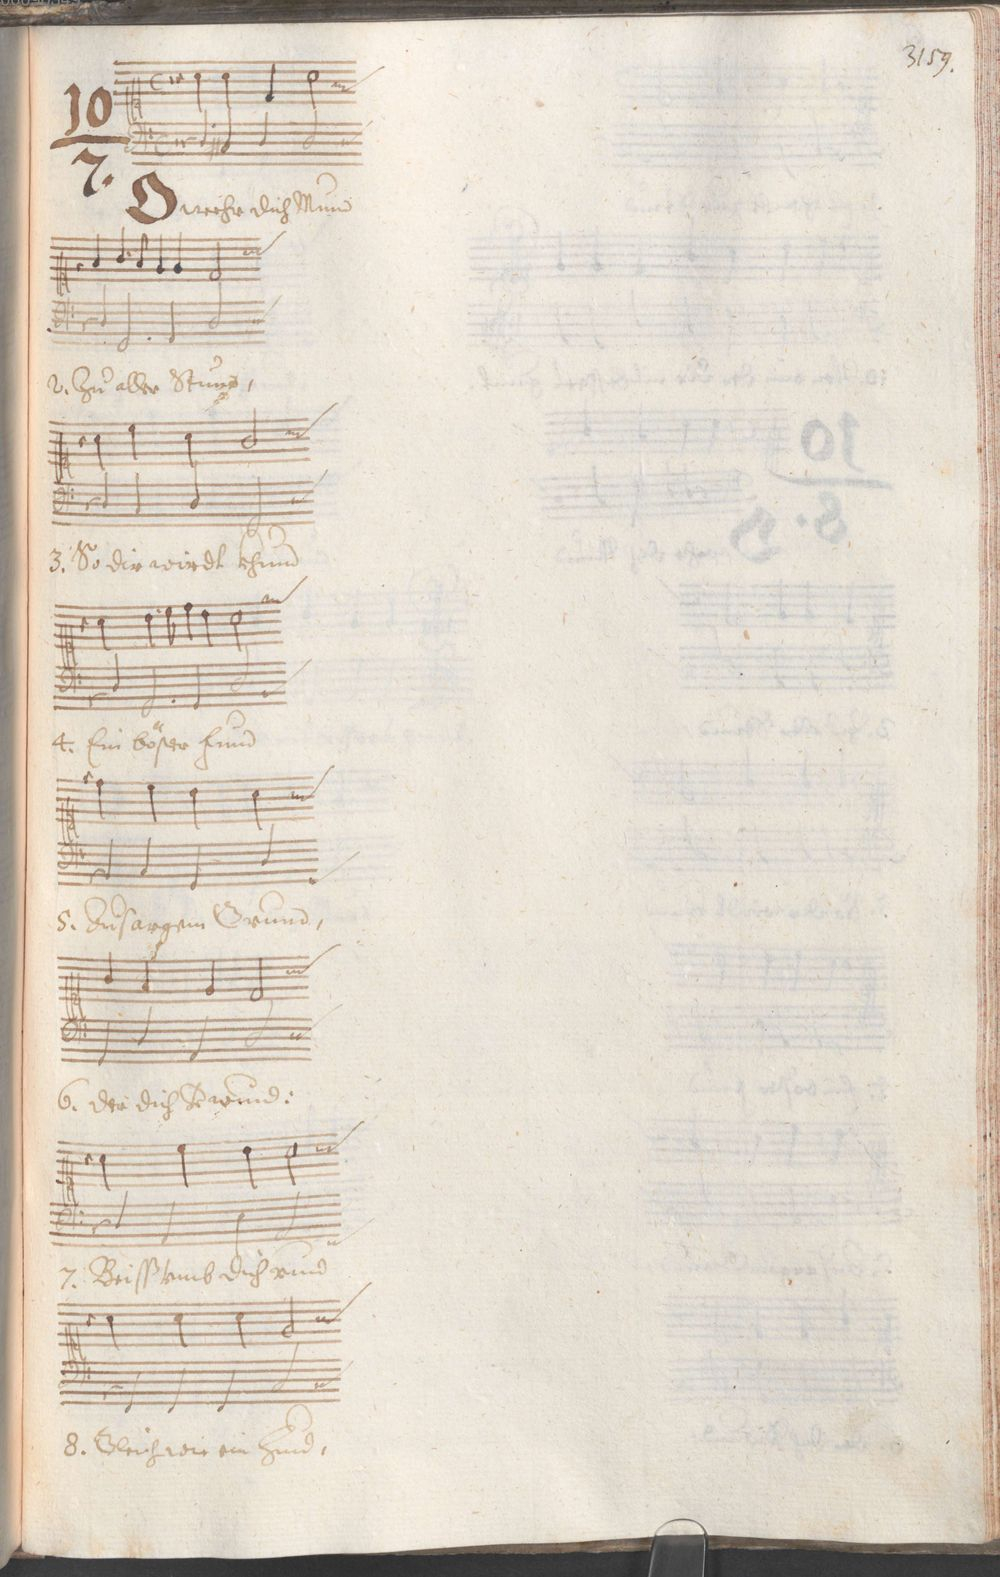 3159.
10
7.
O wehr dich Mund
2. Zu aller Stund,
3. So dir wirdt khund
4. Ein böser Hund
5. Aus argem Grund,
6. der dich verwund:
7. Beiss umb dich rund
8. Gleich wie ein Hund,